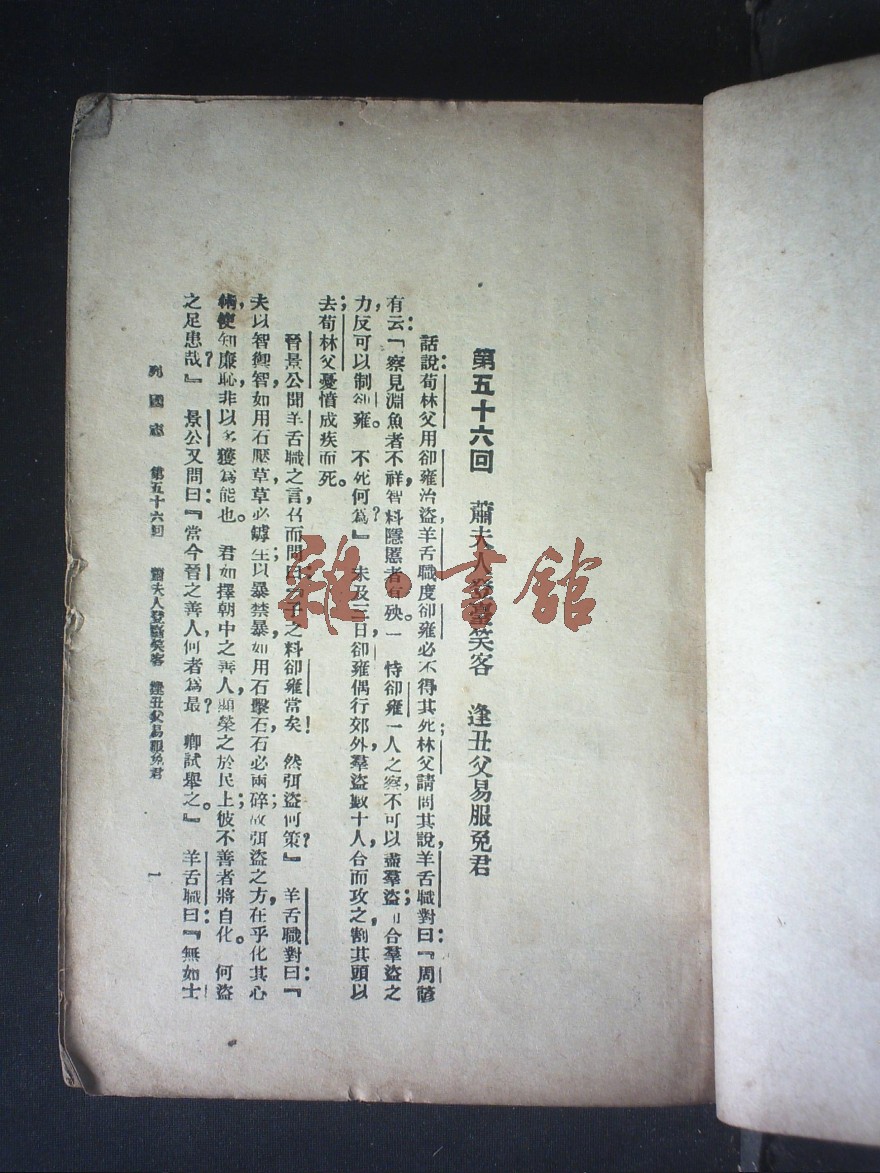 第五十六回　蕭夫人登臺笑客　逢丑父易服免君
話說荀林父用卻雍治盜，羊舌職度卻雍必不得其死；林父請問其說，羊舌職對曰：『周諺
有云：「察見淵魚者不祥，智料隱慝者有殃。」恃卻雍一人之察，不可以盡羣盜；而合羣盜之
力，反可以制卻雍。不死何為？』未及三日，卻雍偶行郊外，羣盜數十人，合而攻之，割其頭以
去；荀林父憂憤成疾而死。
晉景公聞羊舌職之言，召而問曰：『子之料卻雍當矣！然弭盜何策？』羊舌職對曰：『
夫以智禦智，如用石壓草，草必罅生；以暴禁暴，如用石擊石，石必兩碎；故弭盜之方，在乎化其心
術，使知廉恥，非以多獲為能也。君如擇朝中之善人，顯榮之於民上；彼不善者將自化。何盜
之足患哉？』景公又問曰：『當今晉之善人，何者為最？卿試舉之。』羊舌職曰：『無如士
列國志　第五十六回　蕭夫人登臺笑客　逢丑父易服免君　一
雜·書館